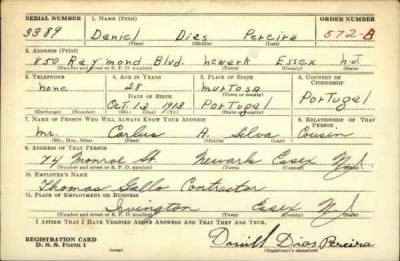 SERIAL NUMBER 1. Name (Print) ORDER NUMBER
3389 Daniel Dias Pereira 572-A
(First) (Middle) (Last)
2. Address (Print)
850 Raymond Blvd. Newark Essex N.J.
(Number and street or R. F. D. number) (Town) (County) (State)
3. Telephone 4. Age in Years 5. Place of Birth 6. Country of Citizenship
none 28 Murtosa Portugal
Date of Birth (Town or county)
Oct. 13 1913 Portugal
(Exchange) (Number) (Mo.) (Day) (Yr.) (State or country)
7. Name of Person Who Will Always Know Your Address 8. Relationship of That Person
Mr. Carlus A. Silva Cousin
(Mr., Mrs., Miss) (First) (Middle) (Last)
9. Address of That Person
74 Monroe St. Newark Essex N.J.
(Number and street or R. F. D. number) (Town) (County) (State)
10. Employer's Name
Thomas Gallo Contractor
11. Place of Employment or Business
Irvington Essex N.J.
(Number and street or R. F. D. number) (Town) (County) (State)
I Affirm That I Have Verified Above Answers and That They Are True.
REGISTRATION CARD
D. S. S. Form 1 (over) Daniel Dias Pereira
(Registrant's signature)